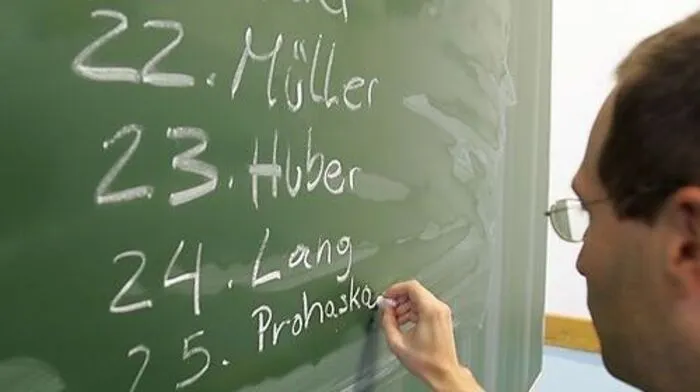 22. Müller
23. Huber
24. Lang
25. Prohaska